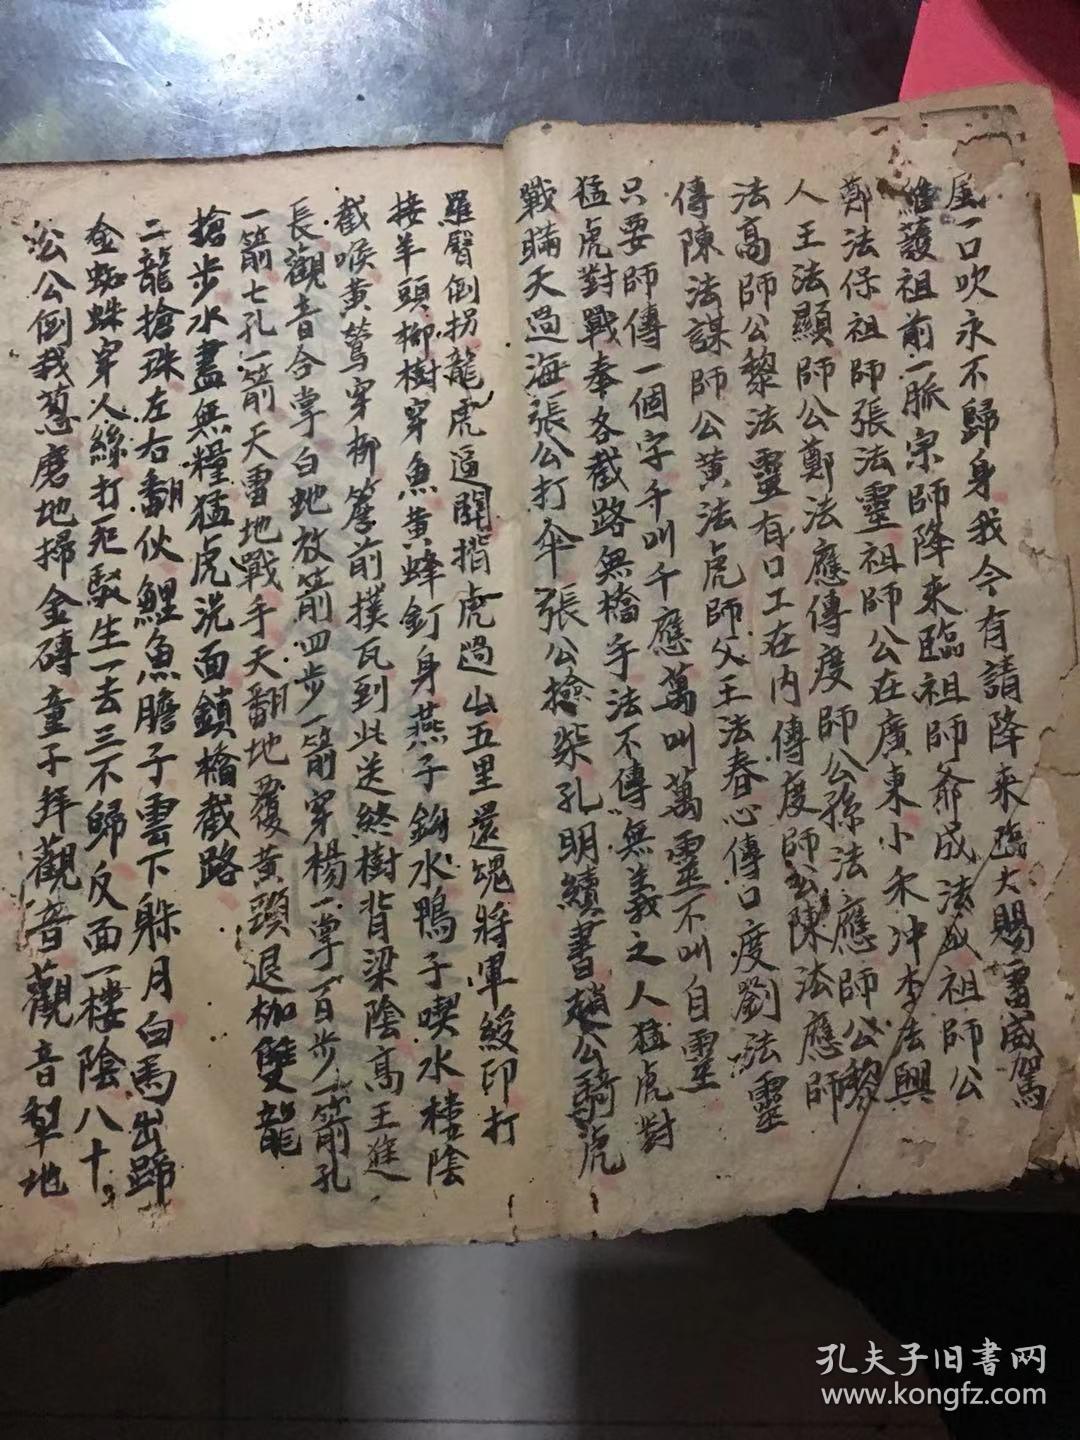 一口吹永不歸身我今有請降来臨大賜雷威駕
維護祖前一脈宗師降来臨祖師爺成法威祖師公
鄭法保祖師張法靈祖師公在廣東小禾冲李法興
人王法顯師公鄭法應傳度師公孫法應師公黎
法高師公黎法靈有口工在内傳度師公陳法應師
傳陳法謀師公黄法虎師父王法春心傳口度劉法靈
只要師傳一個字千叫千應萬叫萬靈不叫自靈
猛虎對戰奉各截路無橋手法不傳無義之人猛虎對
戰瞞天過海張公打傘張公撿柴孔明續書趙公騎虎
羅臂倒拐龍虎逼開揩虎過山五里還魂將軍綬印打
接羊頭柳樹穿魚黄蜂釘身燕子鉤水鴨子喫水樓陰
截喉黄鶯穿柳簷前撲瓦到此送終樹背梁陰高王進
長觀音合掌白虵放箭四步一箭穿楊一掌了百步一箭孔
一箭七孔一箭天雷地戰手天翻地覆黄頸退枷雙龍
搶步水盡無糧猛虎洗面鎖橋截路
二龍搶珠左右翻伙鯉魚膽子雲下躲月白馬出蹄
金蜘蛛穿人絲打死馱生一去三不歸反面一樓陰八十
公倒我葱磨地掃金磚童子拜觀音觀音犁地
孔夫子旧書网
www.kongfz.com